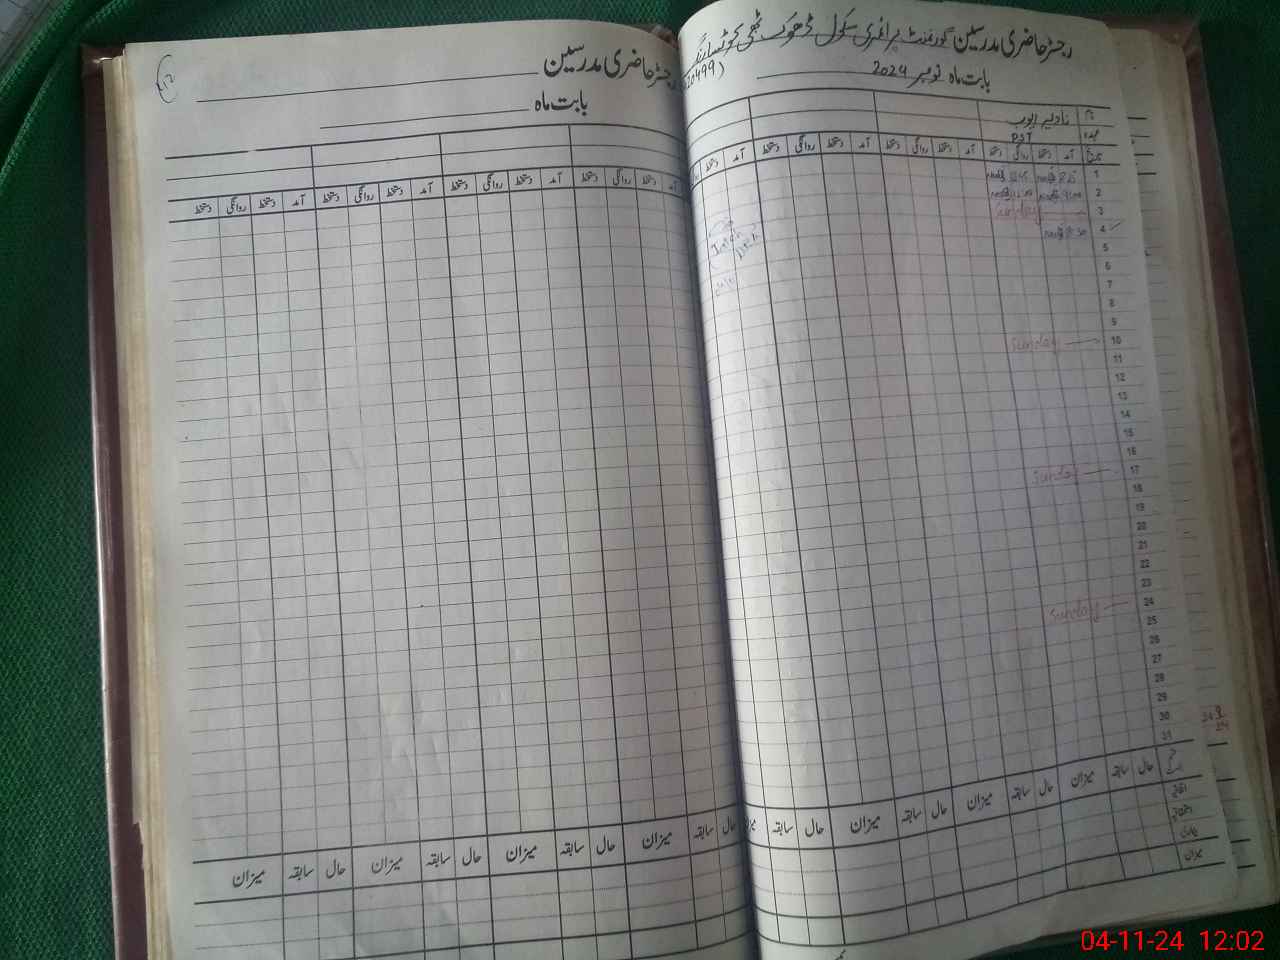 رجسٹر حاضری مدرسین گورنمنٹ پرائمری سکول ڈھوک
بابت ماہ نومبر 2024
نام نادیہ ایوب
عہدہ PST
تاریخ آمد دستخط روانگی دستخط آمد دستخط روانگی دستخط آمد دستخط روانگی دستخط آمد دستخط
1
2
3 Sunday
4
5
6
7
8
9
10 Sunday
11
12
13
14
15
16
17 Sunday
18
19
20
21
22
23
24 Sunday
25
26
27
28
29
30
31
حال سابقہ میزان حال سابقہ میزان حال سابقہ
اتفاقیہ
استحقاقیہ
بیماری
میزان
رجسٹر حاضری مدرسین
بابت ماہ
آمد دستخط روانگی دستخط آمد دستخط روانگی دستخط آمد دستخط روانگی دستخط آمد دستخط روانگی دستخط
حال سابقہ میزان حال سابقہ میزان حال سابقہ میزان حال سابقہ میزان
04-11-24 12:02